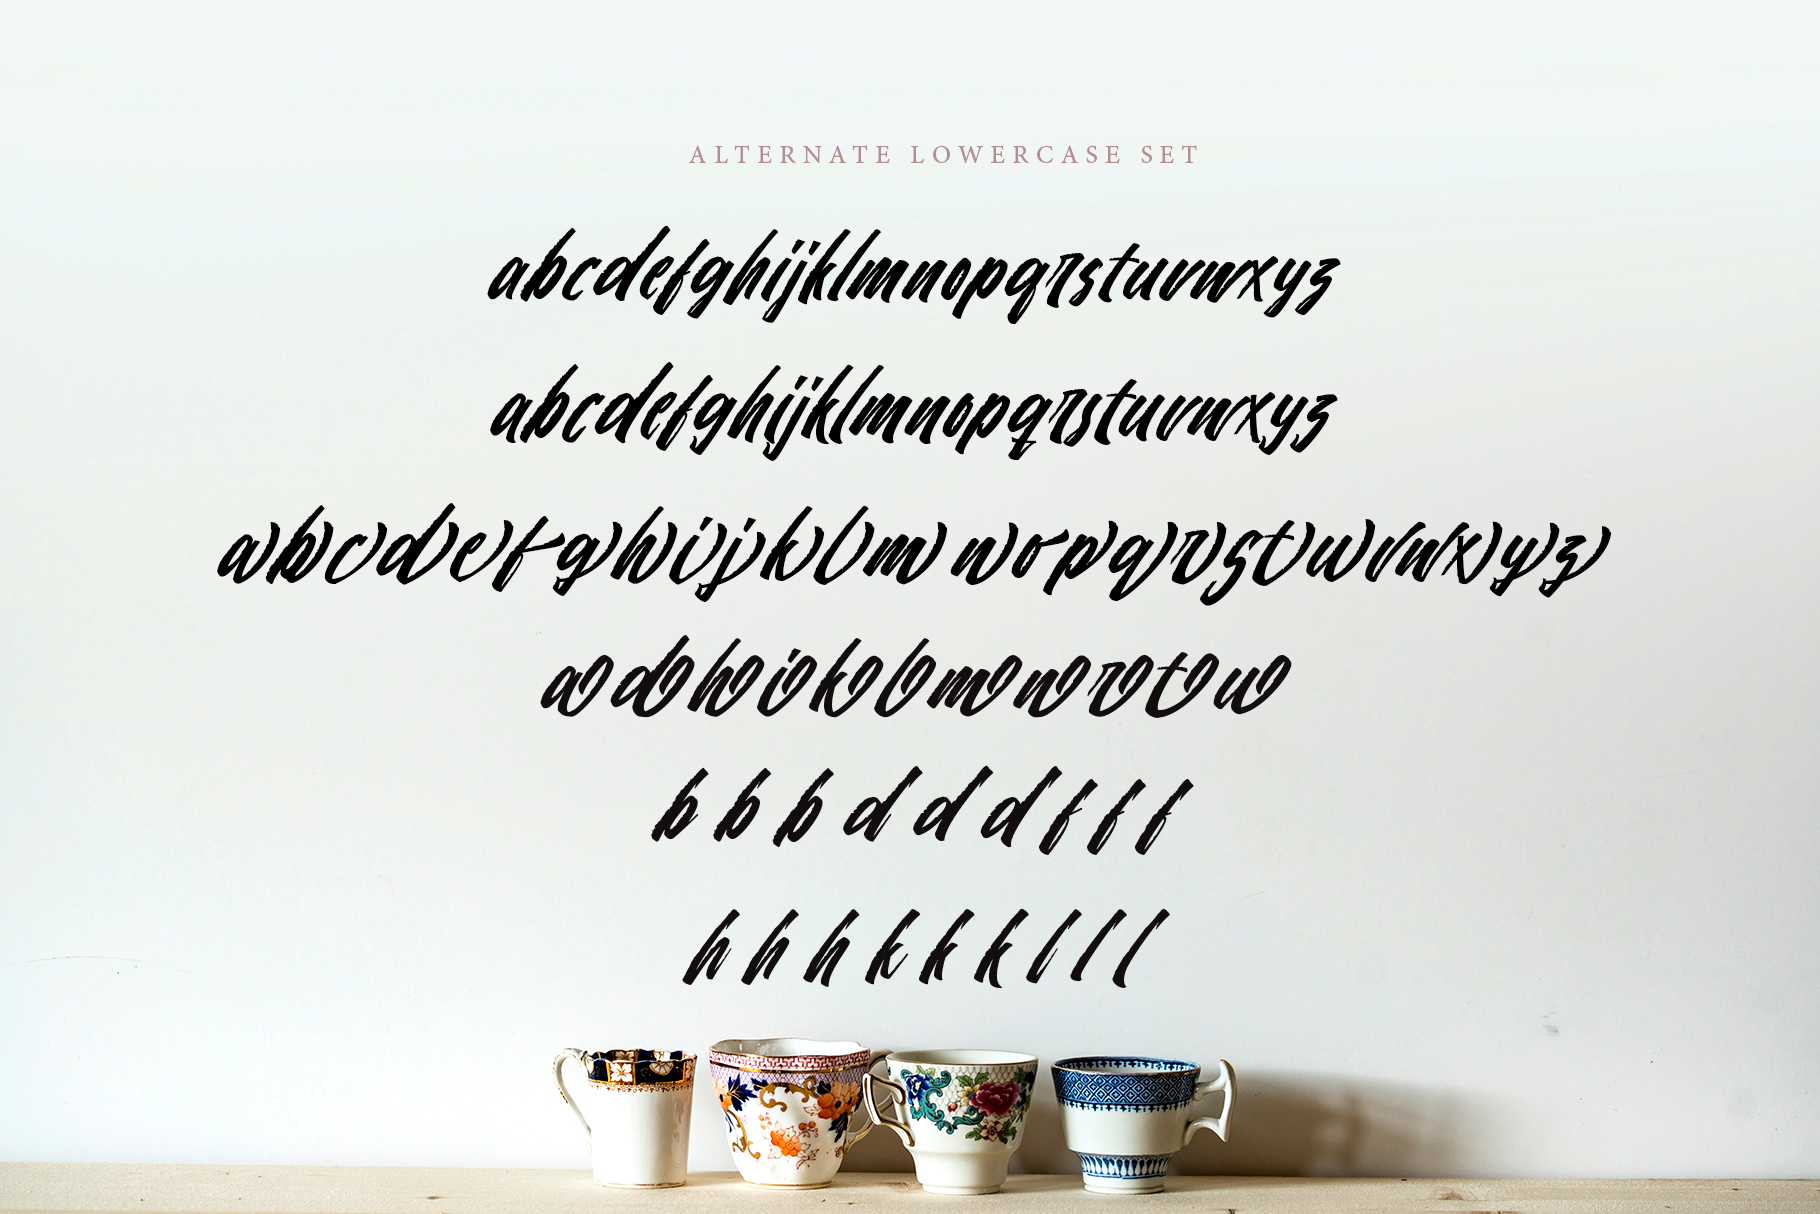 ALTERNATE LOWERCASE SET
abcdefghijklmnopqrstuvwxyz
abcdefghijklmnopqrstuvwxyz
abcdefghijklm nopqrstuvwxyz
a d h i k l m n r t u
b b b d d d f f f
h h h k k k l l l